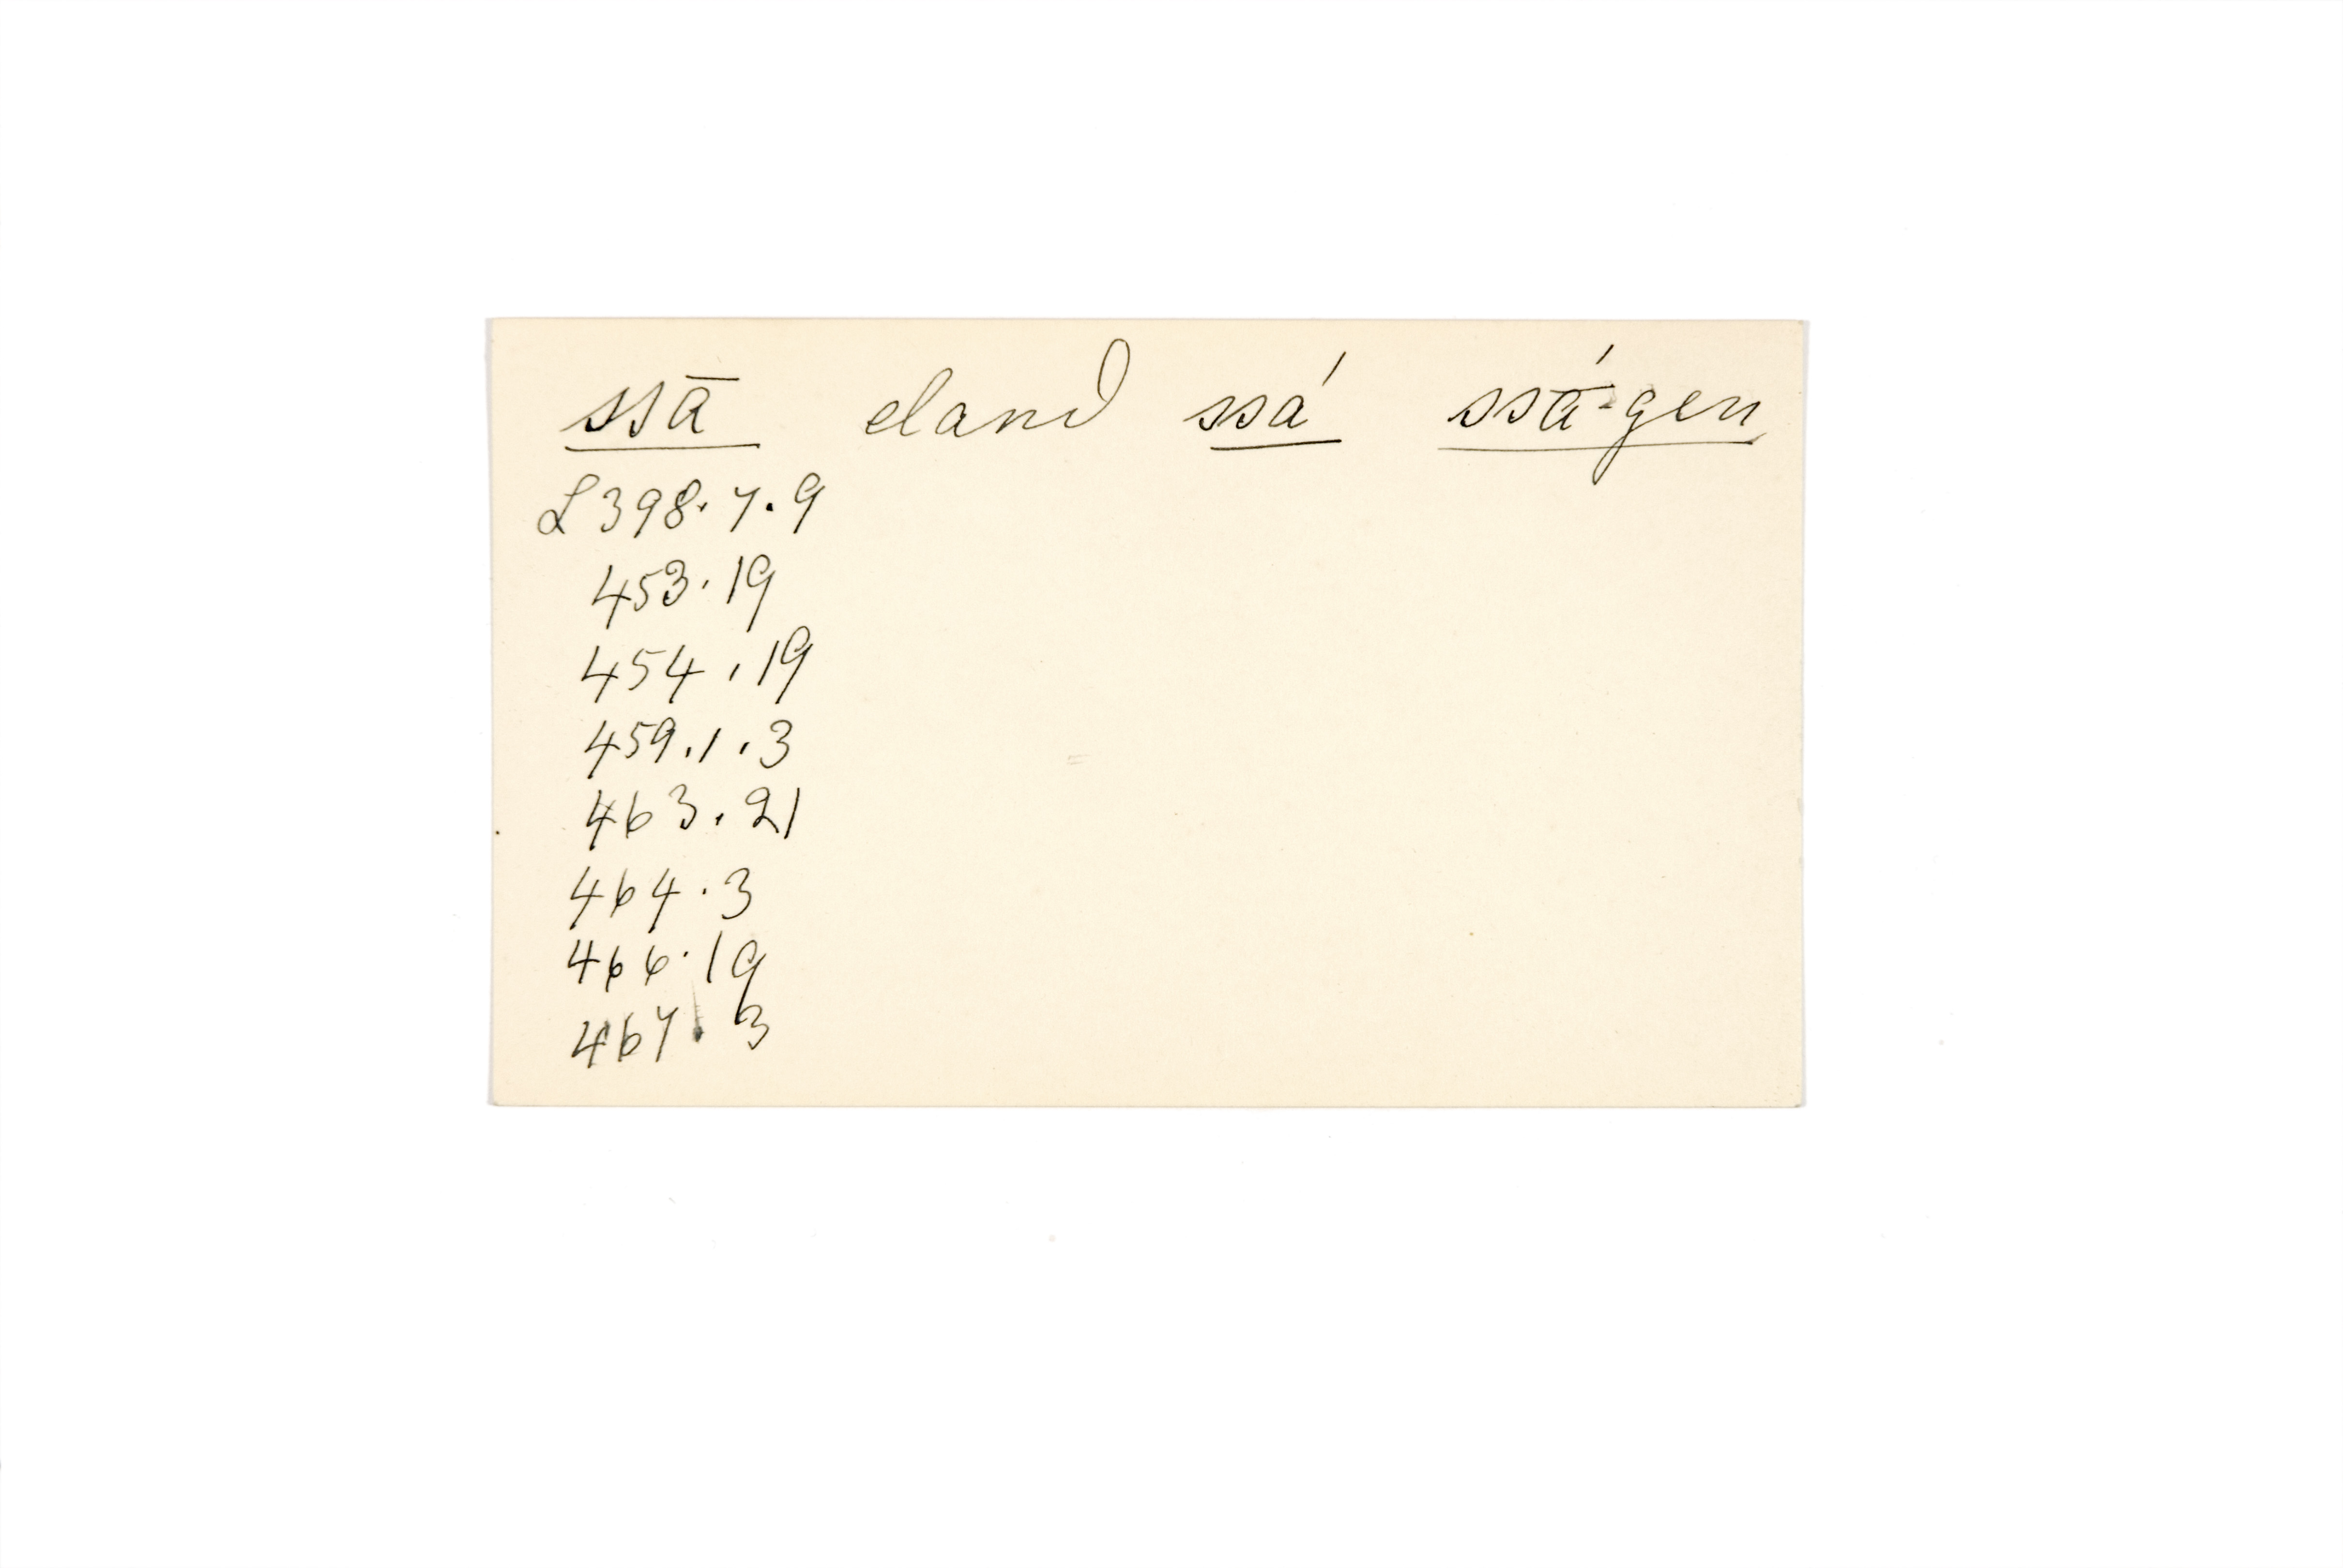 ssā eland ssá ssā́-gen
L 398. 7. 9
453. 19
454. 19
459. 1. 3
463. 21
464. 3
466. 19
467. 3